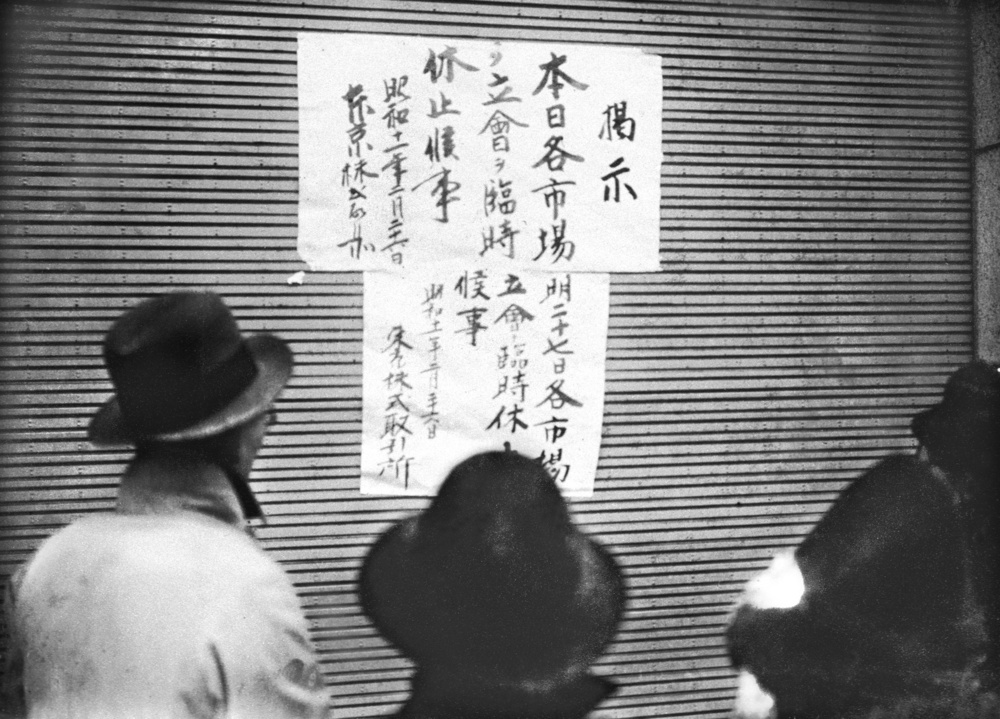 掲示
本日各市場
ノ立會ヲ臨時
休止候事
昭和十一年二月二十六日
東京株式取引所
明二十七日各市場
立會ヲ臨時休
候事
昭和十一年二月二十六日
東京株式取引所